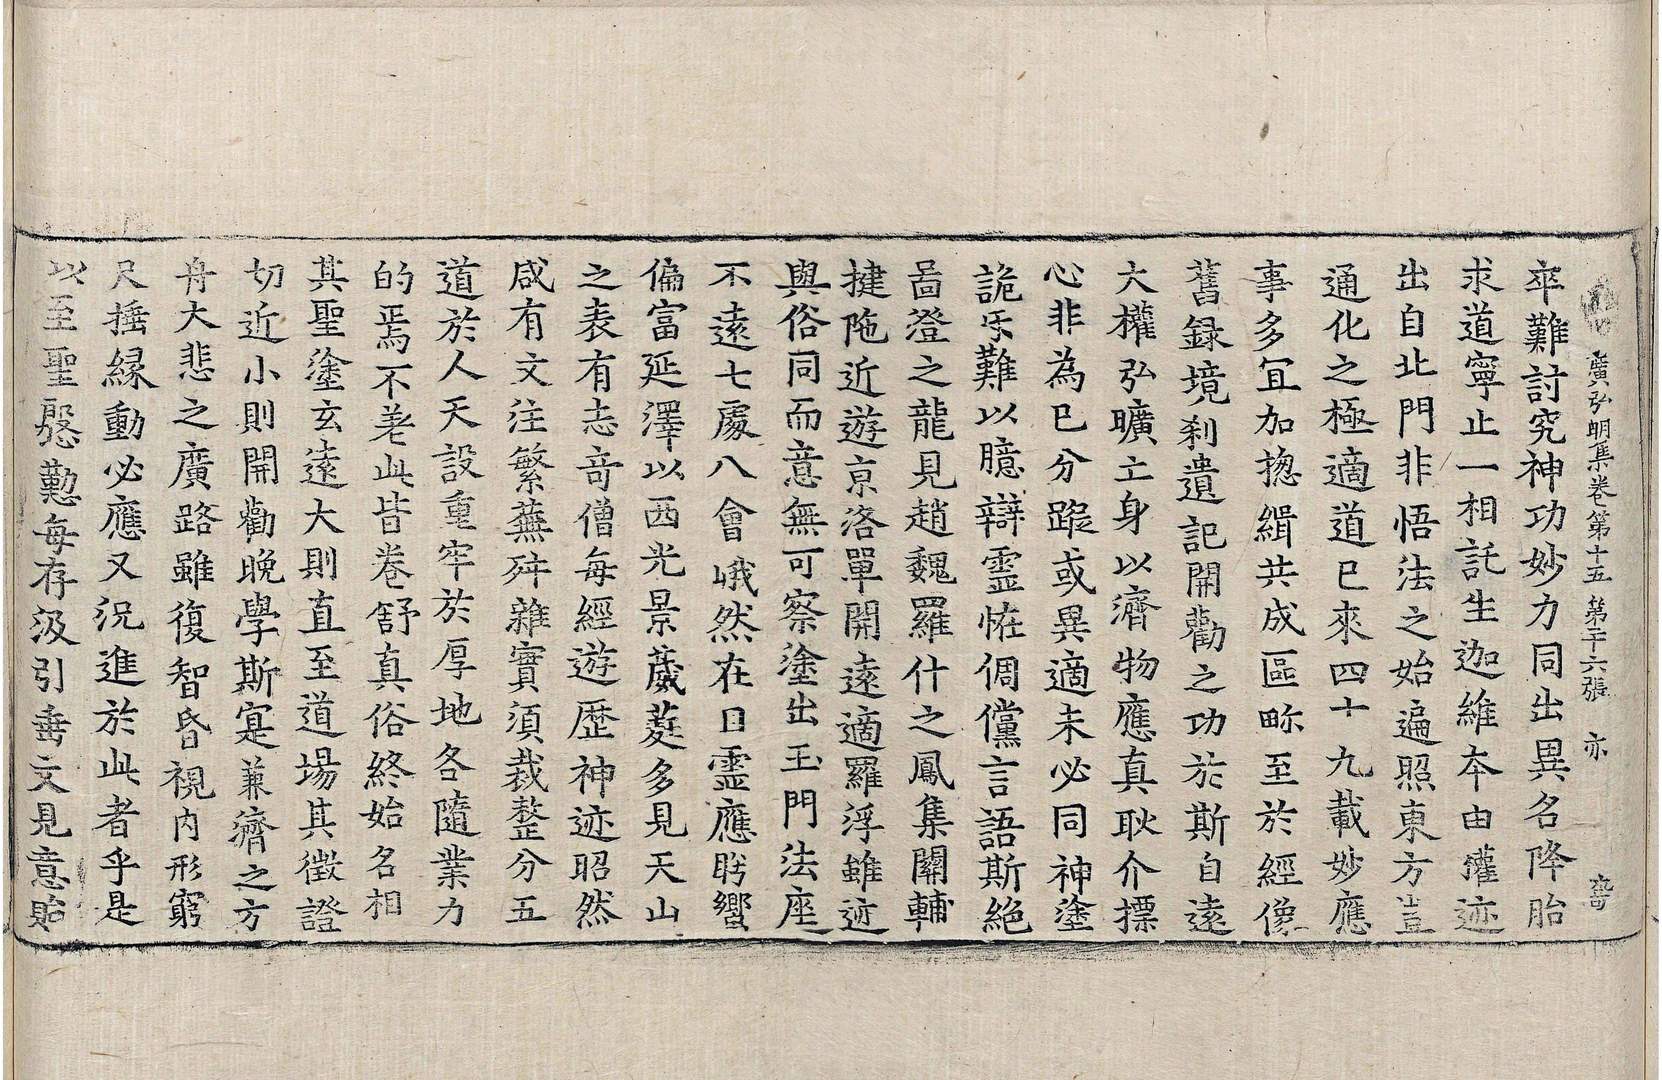 廣弘明集卷第十五 第二十六張 亦
卒難討究神功妙力同出異名降胎
求道寧止一相託生迦維夲由權迹
出自北門非悟法之始遍照東方豈
通化之極適道已來四十九載妙應
事多冝加揔緝共成區畛至於經像
舊録境刹遺記開勸之功於斯自遠
大權弘曠亡身以濟物應真耿介摽
心非為已分蹤或異適未必同神塗
詭㸦難以臆辯靈恠倜儻言語斯絕
啚澄之龍見趙魏羅什之鳳集關輔
揵陁近遊京洛單開遠適羅浮雖迹
與俗同而意無可察塗出玉門法座
不遠七處八會峨然在目靈應盻蠁
偏富延澤以西光景葳蕤多見天山
之表有志竒僧每經遊歷神迹昭然
咸有文注繁蕪舛雜實須裁整分五
道於人天設重牢於厚地各隨業力
的焉不差此皆卷舒真俗終始名相
其聖塗玄遠大則直至道場其徵證
切近小則開勸晚學斯寔兼濟之方
舟大悲之廣路雖復智昏視内形窮
尺捶縁動必應又況進於此者乎是
以至聖慇懃每存汲引垂文見意貽